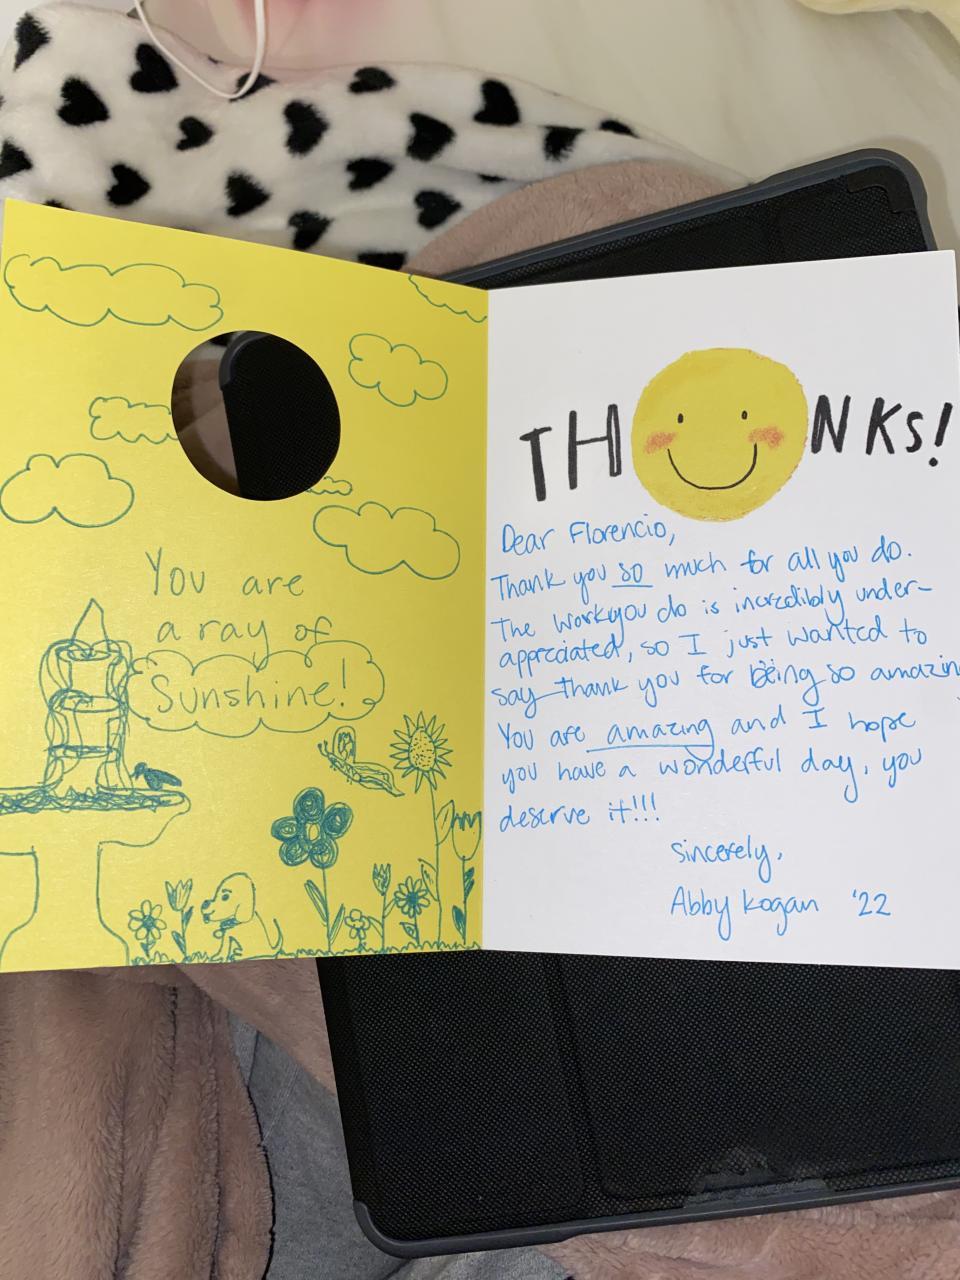 You are
a ray of
Sunshine!
TH NKS!
Dear Florencio,
Thank you so much for all you do.
The work you do is incredibly under-
appreciated, so I just wanted to
say thank you for being so amazin
You are amazing and I hope
you have a wonderful day, you
deserve it!!!
sincerely,
Abby Kogan '22